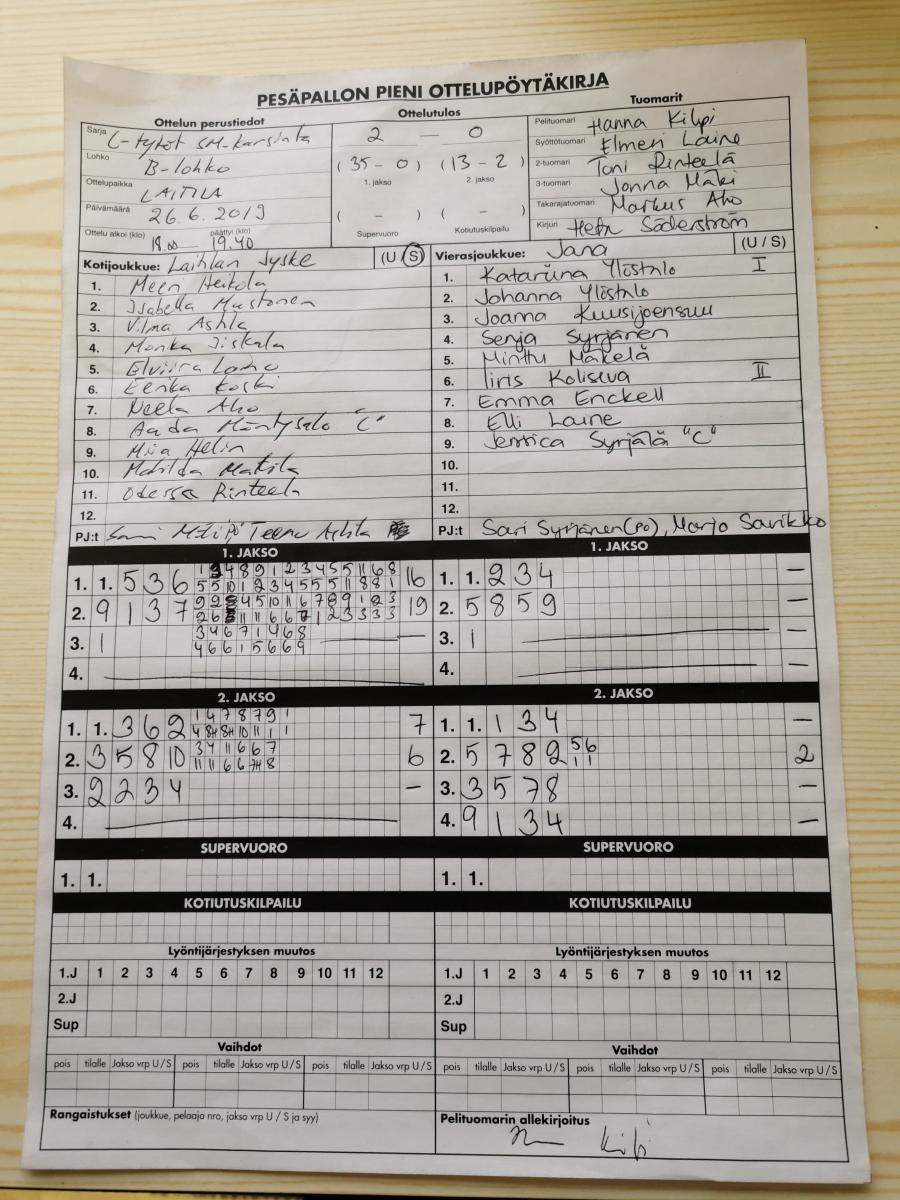 PESÄPALLON PIENI OTTELUPÖYTÄKIRJA
Ottelun perustiedot
Sarja C-tytöt SM-karsinta
Lohko B-lohko
Ottelupaikka LAITILA
Päivämäärä 26.6.2019
Ottelu alkoi (klo) 18.00 päättyi (klo) 19.40
Ottelutulos
2 – 0
(35 - 0) (13 - 2)
1. jakso 2. jakso
( - ) ( - )
Supervuoro Kotiutuskilpailu
Tuomarit
Pelituomari Hanna Kilpi
Syöttötuomari Elmeri Laine
2-tuomari Toni Rinteelä
3-tuomari Jonna Mäki
Takarajatuomari Markus Aho
Kirjuri Söderström
Kotijoukkue: Laihian Jyske (U / S)
1. Meeri Heikola
2. Isabella Mustonen
3. Vilma
4.
5. Elviira Laine
6. Eerika Koski
7. Neela Aho
8. Aada Mäntysalo "C"
9. Miia Helin
10. Matilda
11. Odessa Rinteelä
12.
PJ:t Teemu
Vierasjoukkue: Jana (U / S)
1. Katariina Ylöstalo I
2. Johanna Ylöstalo
3. Joanna Kuusijoensuu
4. Senja Syrjänen
5. Minttu Mäkelä
6. Iiris Koliseva II
7. Emma Enckell
8. Elli Laine
9. Jessica Syrjälä "C"
10.
11.
12.
PJ:t Sari Syrjänen (PJ), Marjo Sarikko
1. JAKSO
1. 1. 5 3 6 16
2. 9 1 3 7 19
3. 1 –
4.
1. JAKSO
1. 1. 2 3 4 –
2. 5 8 5 9 –
3. 1 –
4. –
2. JAKSO
1. 1. 3 6 2 7
2. 3 5 8 10 6
3. 2 2 3 4 –
4.
2. JAKSO
1. 1. 1 3 4 –
2. 5 7 8 9 2
5 6
1 1
3. 3 5 7 8 –
4. 9 1 3 4 –
SUPERVUORO
1. 1.
SUPERVUORO
1. 1.
KOTIUTUSKILPAILU
KOTIUTUSKILPAILU
Lyöntijärjestyksen muutos
1.J 1 2 3 4 5 6 7 8 9 10 11 12
2.J
Sup
Lyöntijärjestyksen muutos
1.J 1 2 3 4 5 6 7 8 9 10 11 12
2.J
Sup
Vaihdot
pois tilalle Jakso vrp U / S pois tilalle Jakso vrp U / S pois tilalle Jakso vrp U / S
Vaihdot
pois tilalle Jakso vrp U / S pois tilalle Jakso vrp U / S pois tilalle Jakso vrp U / S
Rangaistukset (joukkue, pelaaja nro, jakso vrp U / S ja syy)
Pelituomarin allekirjoitus